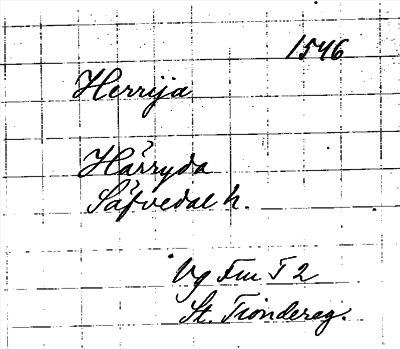 1546
Herrija
Härryda
Säfvedal h.
Vg Fru T 2
St. Tiondereg.